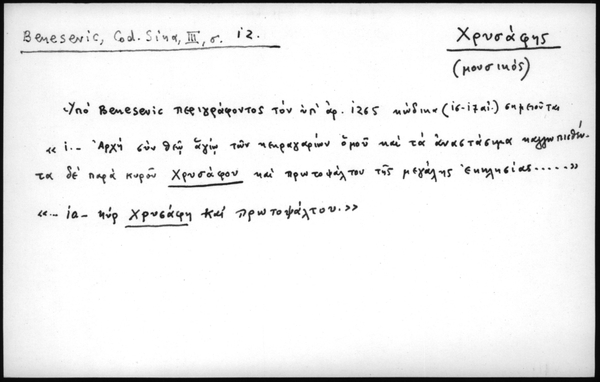 Benesevic, Cod. Sina, III, σ. 12.
Χρυσάφης
(μουσικός)
Ὑπό Benesevic περιγράφοντος τόν ὑπ' ἀρ. 1265 κώδικα (ις-ιζ αἰ.) σημειοῦται
«1.- Ἀρχή σύν θεῷ ἁγίῳ τῶν κεκραγαρίων ὁμοῦ καί τά ἀναστάσιμα καλλωπισθέν-
τα δέ παρά κυροῦ Χρυσάφου καί πρωτοψάλτου τῆς μεγάλης ἐκκλησίας.....»
«..- 1α- κύρ Χρυσάφη καί πρωτοψάλτου.»